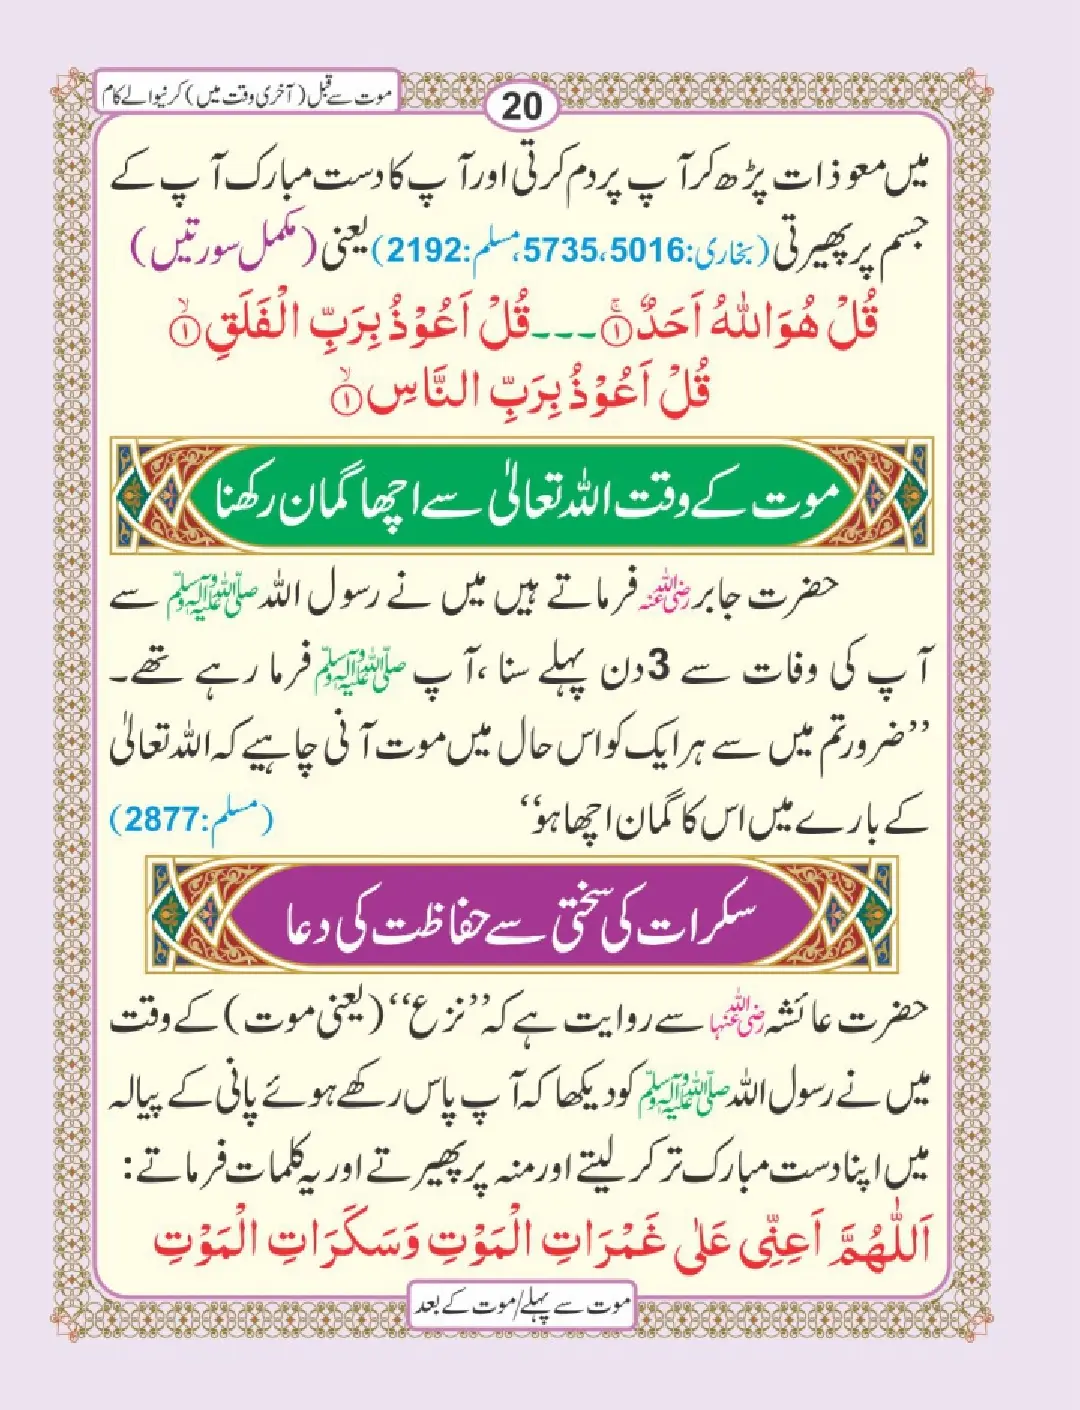 موت سے قبل (آخری وقت میں) کرنیوالے کام
20
میں معوذات پڑھ کر آپ پر دم کرتی اور آپ کا دست مبارک آپ کے
جسم پر پھیرتی (بخاری:5016،5735، مسلم:2192) یعنی (مکمل سورتیں)
قُلْ هُوَ اللّٰهُ اَحَدٌ ۚ۝۱ ۔۔۔ قُلْ اَعُوْذُ بِرَبِّ الْفَلَقِ ۙ۝۱
قُلْ اَعُوْذُ بِرَبِّ النَّاسِ ۙ۝۱
موت کے وقت اللہ تعالیٰ سے اچھا گمان رکھنا
حضرت جابر رضی اللہ عنہ فرماتے ہیں میں نے رسول اللہ صلی اللہ علیہ وآلہ وسلم سے
آپ کی وفات سے 3 دن پہلے سنا ، آپ صلی اللہ علیہ وآلہ وسلم فرما رہے تھے۔
’’ضرور تم میں سے ہر ایک کو اس حال میں موت آنی چاہیے کہ اللہ تعالیٰ
کے بارے میں اس کا گمان اچھا ہو‘‘ (مسلم:2877)
سکرات کی سختی سے حفاظت کی دعا
حضرت عائشہ رضی اللہ عنہا سے روایت ہے کہ ’’نزع‘‘ (یعنی موت) کے وقت
میں نے رسول اللہ صلی اللہ علیہ وآلہ وسلم کو دیکھا کہ آپ پاس رکھے ہوئے پانی کے پیالہ
میں اپنا دست مبارک تر کر لیتے اور منہ پر پھیرتے اور یہ کلمات فرماتے:
اَللّٰهُمَّ اَعِنِّی عَلٰی غَمْرَاتِ الْمَوْتِ وَسَكَرَاتِ الْمَوْتِ
موت سے پہلے/موت کے بعد